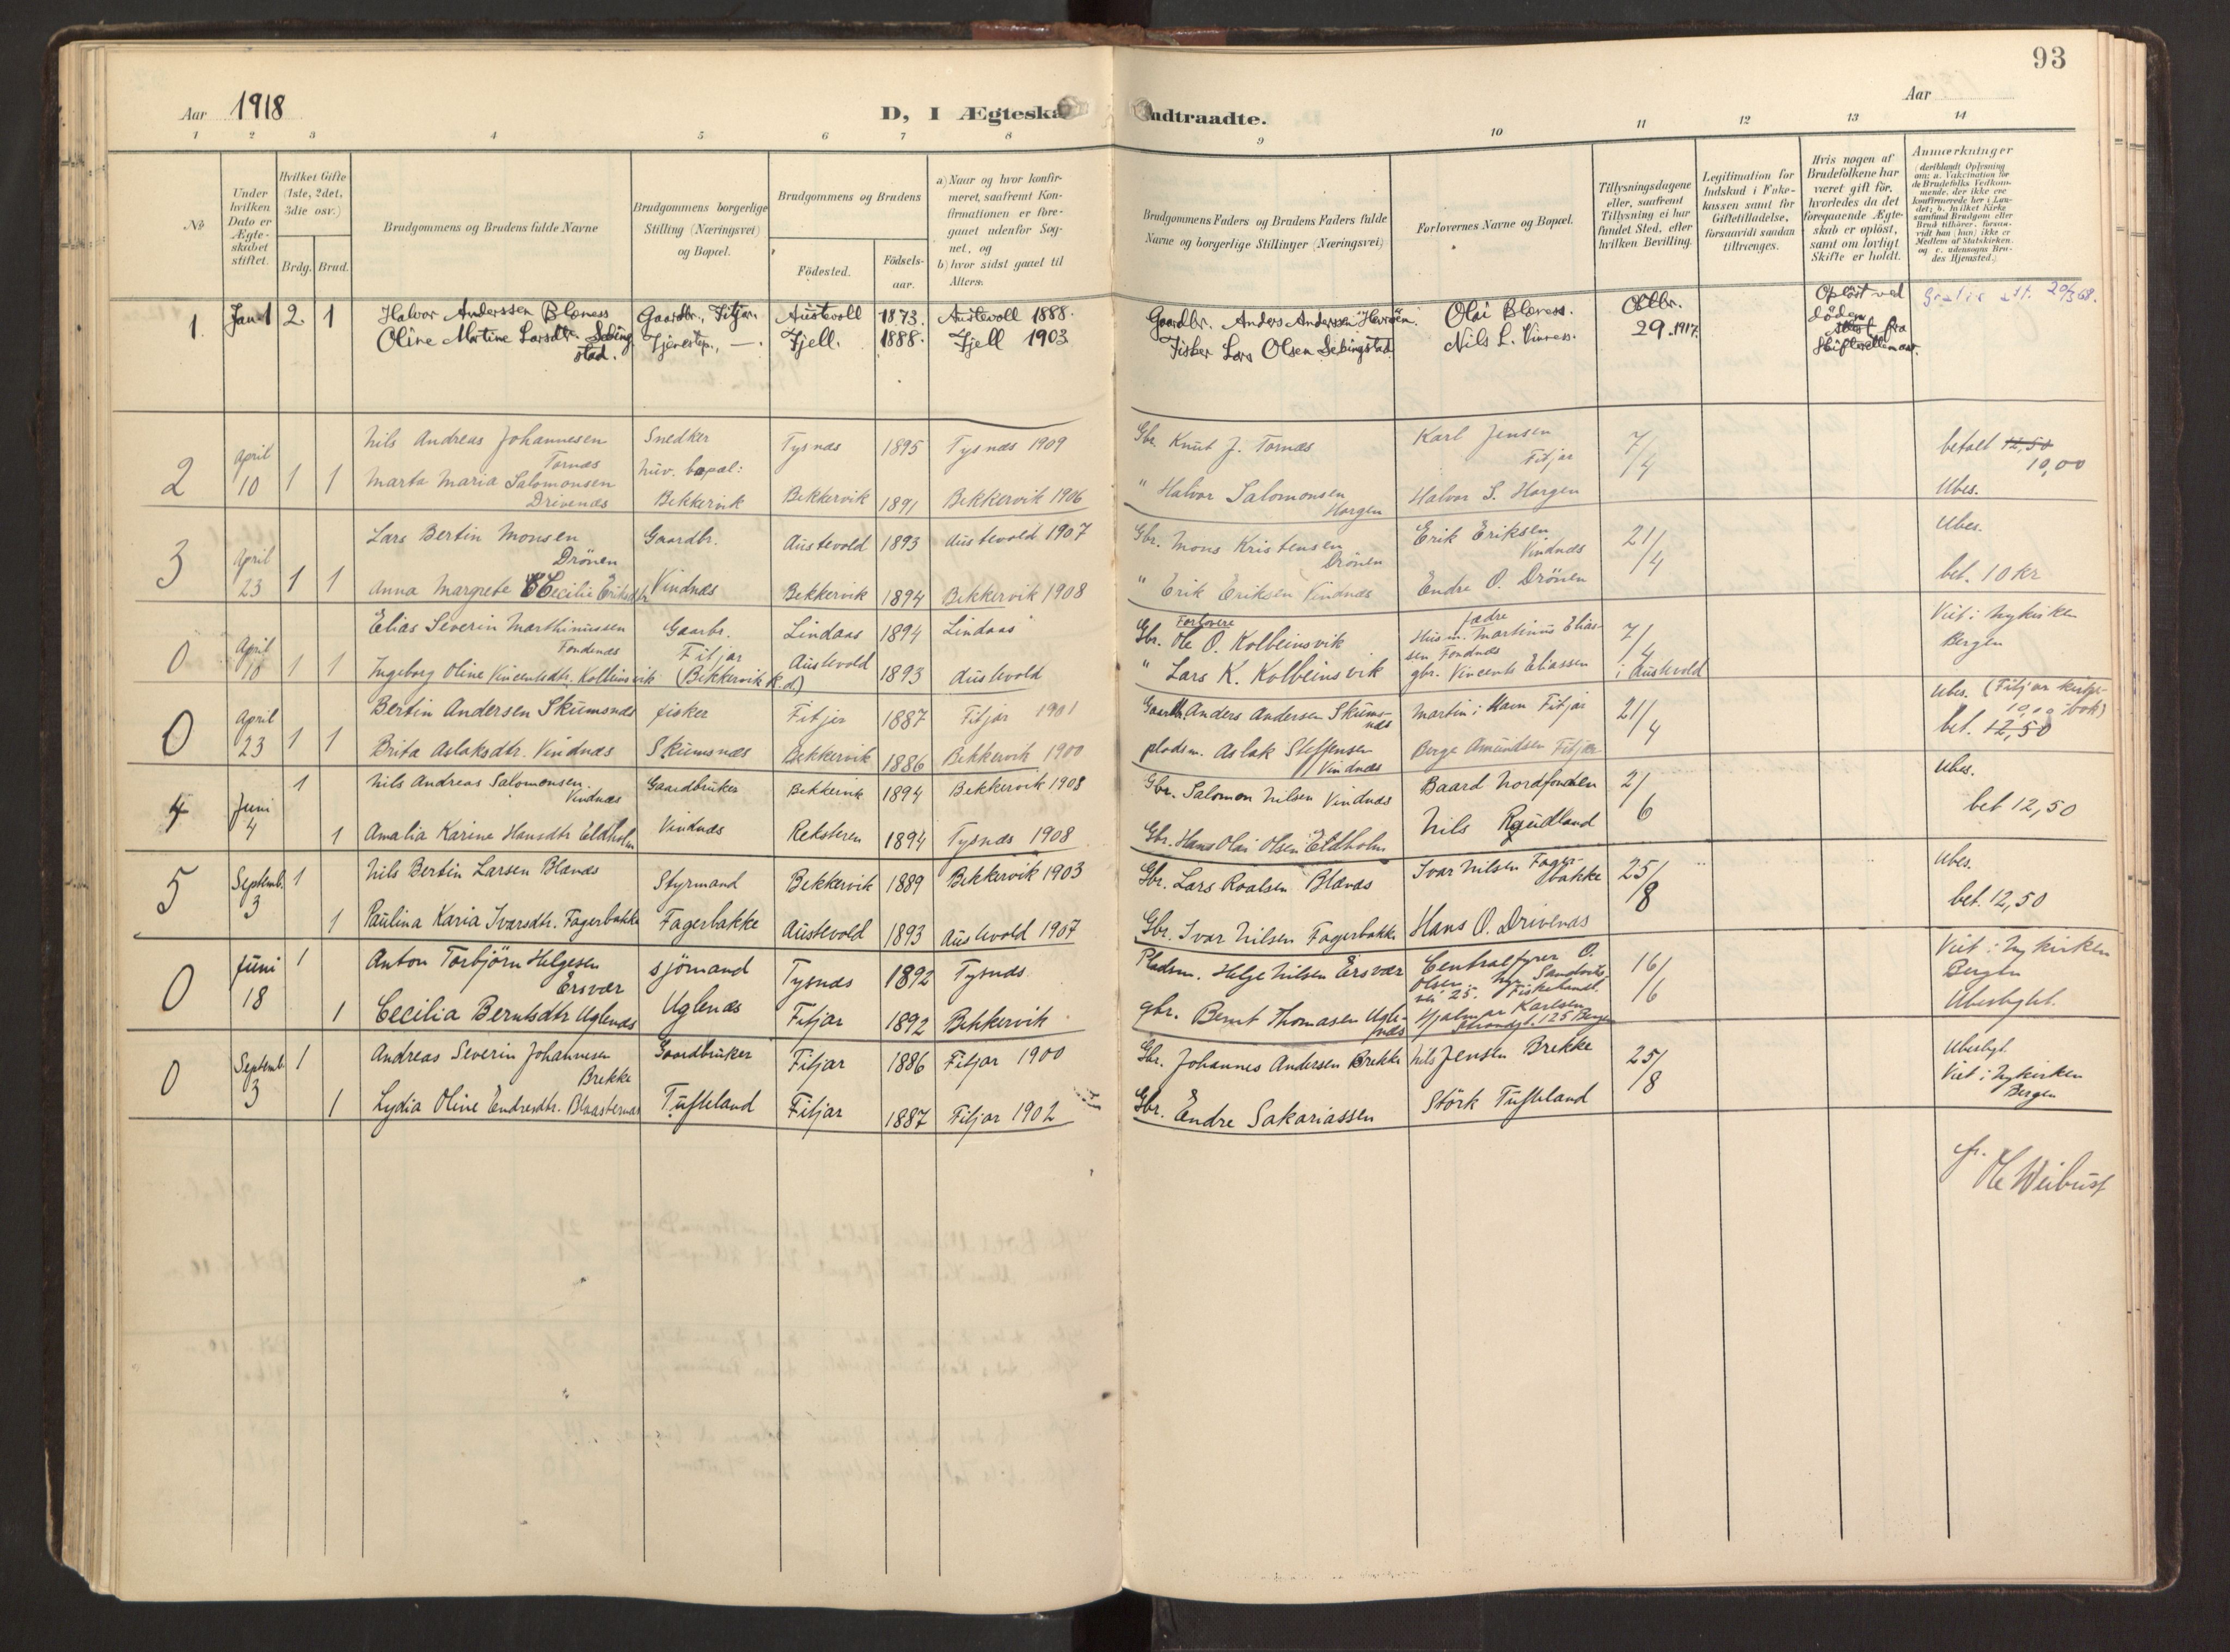 93
Aar 1918
D, I Ægteska
ndtraadte.
Aar
1 2 3 4 5 6 7 8 9 10 11 12 13 14
№
Under hvilken Dato er Ægteskabet stiftet.
Hvilket Gifte (1ste, 2det, 3die osv.)
Brdg. Brud.
Brudgommens og Brudens fulde Navne
Brudgommens borgerlige Stilling (Næringsvei) og Bopæl.
Brudgommens og Brudens
Fødested.
Fødsels-aar.
a) Naar og hvor konfirmeret, saafremt Konfirmationen er foregaaet udenfor Sognet, og
b) hvor sidst gaaet til Alters.
Brudgommens Faders og Brudens Faders fulde Navne og borgerlige Stillinger (Næringsvei)
Forlovernes Navne og Bopæl.
Tillysningsdagene eller, saafremt Tillysning ei har fundet Sted, efter hvilken Bevilling.
Legitimation for Indskud i Enkekassen samt for Giftetilladelse, forsaavidt saadan tiltrænges.
Hvis nogen af Brudefolkene har været gift før, hvorledes da det foregaaende Ægteskab er opløst, samt om lovligt Skifte er holdt.
Anmærkninger (deriblandt Oplysning om: a. Vakcination for de Brudefolks Vedkommende, der ikke ere konfirmerede her i Landet; b. hvilket Kirkesamfund Brudgom eller Brud tilhører, forsaavidt han (hun) ikke er Medlem af Statskirken, og c. udensogns Brudes Hjemsted.)
1. Jan 1 2. 1 Halvor Anderssen Blæness Gaardbr., Fitjar. Austevoll 1873. Austevoll 1888. Gaardbr. Anders Anderssen Olai Blæness. Oktbr. Opløst ved
Oline Martine Larsdtr. Sebingstad. Tjenestep., —. Fjell. 1888. Fjell 1903 Fisker Lars Olsen Sebingstad Nils L. Vinness. 29. 1917. døden fra
2 April 10 1 1 Nils Andreas Johannesen Tornæs Snedker Tysnæs 1895 Tysnæs 1909 Gbr. Knut J. Tornæs Karl Jensen Fitjar 7/4 betalt 12,50 10,00
Marta Maria Salomonsen Drivenæs nuv. bopæl: Bekkervik Bekkervik 1891 Bekkervik 1906 " Halvor Salomonsen Horgen Halvor S. Horgen Ubes.
3 April 23 1 1 Lars Bertin Monsen Drönen Gaardbr. Austevold 1893 Austevold 1907 Gbr. Mons Kristensen Drönen Erik Eriksen Vindnæs 21/4 Ubes.
Anna Margrete Cecilie Eriksdtr Vindnæs Bekkervik 1894 Bekkervik 1908 " Erik Eriksen Vindnæs Endre O. Drönen bet. 10 kr
0 April 10 1 1 Elias Severin Marthinussen Fondenæs Gaarbr. Fitjar Lindaas 1894 Lindaas Forlovere Gbr. Ole O. Kolbeinsvik fædre Husm. Martinus Eliassen Fondnæs 7/4 Viet i Nykirken Bergen
Ingeborg Oline Vincentsdtr. Kolbeinsvik (Bekkervik k.d.) Austevold 1893 Austevold " Lars K. Kolbeinsvik gbr. Vincents Eliassen i Austevold
0 April 23 1 1 Bertin Andersen Skumsnæs fisker Fitjar 1887 Fitjar 1901 Gaardbr. Anders Andersen Skumsnæs Martin i Havn Fitjar 21/4 Ubes. (Fitjar kirkebok)
Brita Aslaksdtr. Vindnæs Skumsnæs Bekkervik 1886 Bekkervik 1900 pladsm. Aslak Steffensen Vindnæs Berge Amundsen Fitjar bet. 12,50
4 Juni 4 1 Nils Andreas Salomonsen Vindnæs Gaardbruker Bekkervik 1894 Bekkervik 1908 Gbr. Salomon Nilsen Vindnæs Baard Nordfonden 2/6 Ubes.
1 Amalia Karine Hansdtr Eldholm Vindnæs Reksteren 1894 Tysnæs 1908 Gbr. Hans Olai Olsen Eldholm Nils bet 12,50
5 Septemb. 3 1 Nils Bertin Larsen Blænæs Styrmand Bekkervik 1889 Bekkervik 1903 Gbr. Lars Roalsen Blænæs Ivar Nilsen Fagerbakke 25/8 Ubes.
1 Paulina Karia Ivarsdtr. Fagerbakke Fagerbakke Austevold 1893 Austevold 1907 Gbr. Ivar Nilsen Fagerbakke Hans O. Drivenæs bet. 12,50
0 Juni 18 1 Anton Torbjörn Helgesen Ersvær sjömand Tysnæs 1892 Tysnæs Pladsm. Helge Nilsen Ersvær Centralfyrer O. Olsen 16/6 Viet i Nykirken Bergen
1 Cecilia Berntsdtr Uglenæs Uglenæs Fitjar 1892 Bekkervik gbr. Bernt Thomasen Uglenæs Hjalmar Karlsen Strandgt. 125 Bergen Ubeslyht.
0 Septemb. 3 1 Andreas Severin Johannesen Brekke Gaardbruker Fitjar 1886 Fitjar 1900 Gbr. Johannes Andersen Brekke Nils Jensen Brekke 25/8 Ubeslyt.
1 Lydia Oline Endresdtr. Blaasternæs Tufteland Fitjar 1887 Fitjar 1902 Gbr. Endre Sakariassen Störk Tufteland Viet i Nykirken Bergen
Ole Weibust